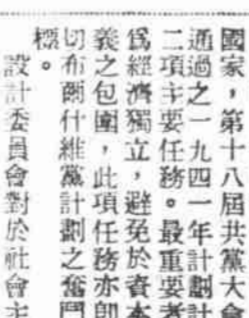 國家，第十八屆共黨大會
通過之一九四一年計劃計
二項主要任務。最重要者
爲經濟獨立，避免於資本
義之包圍，此項任務亦卽
切布爾什維黨計劃之奮鬥
標。
設計委員會對於社會主